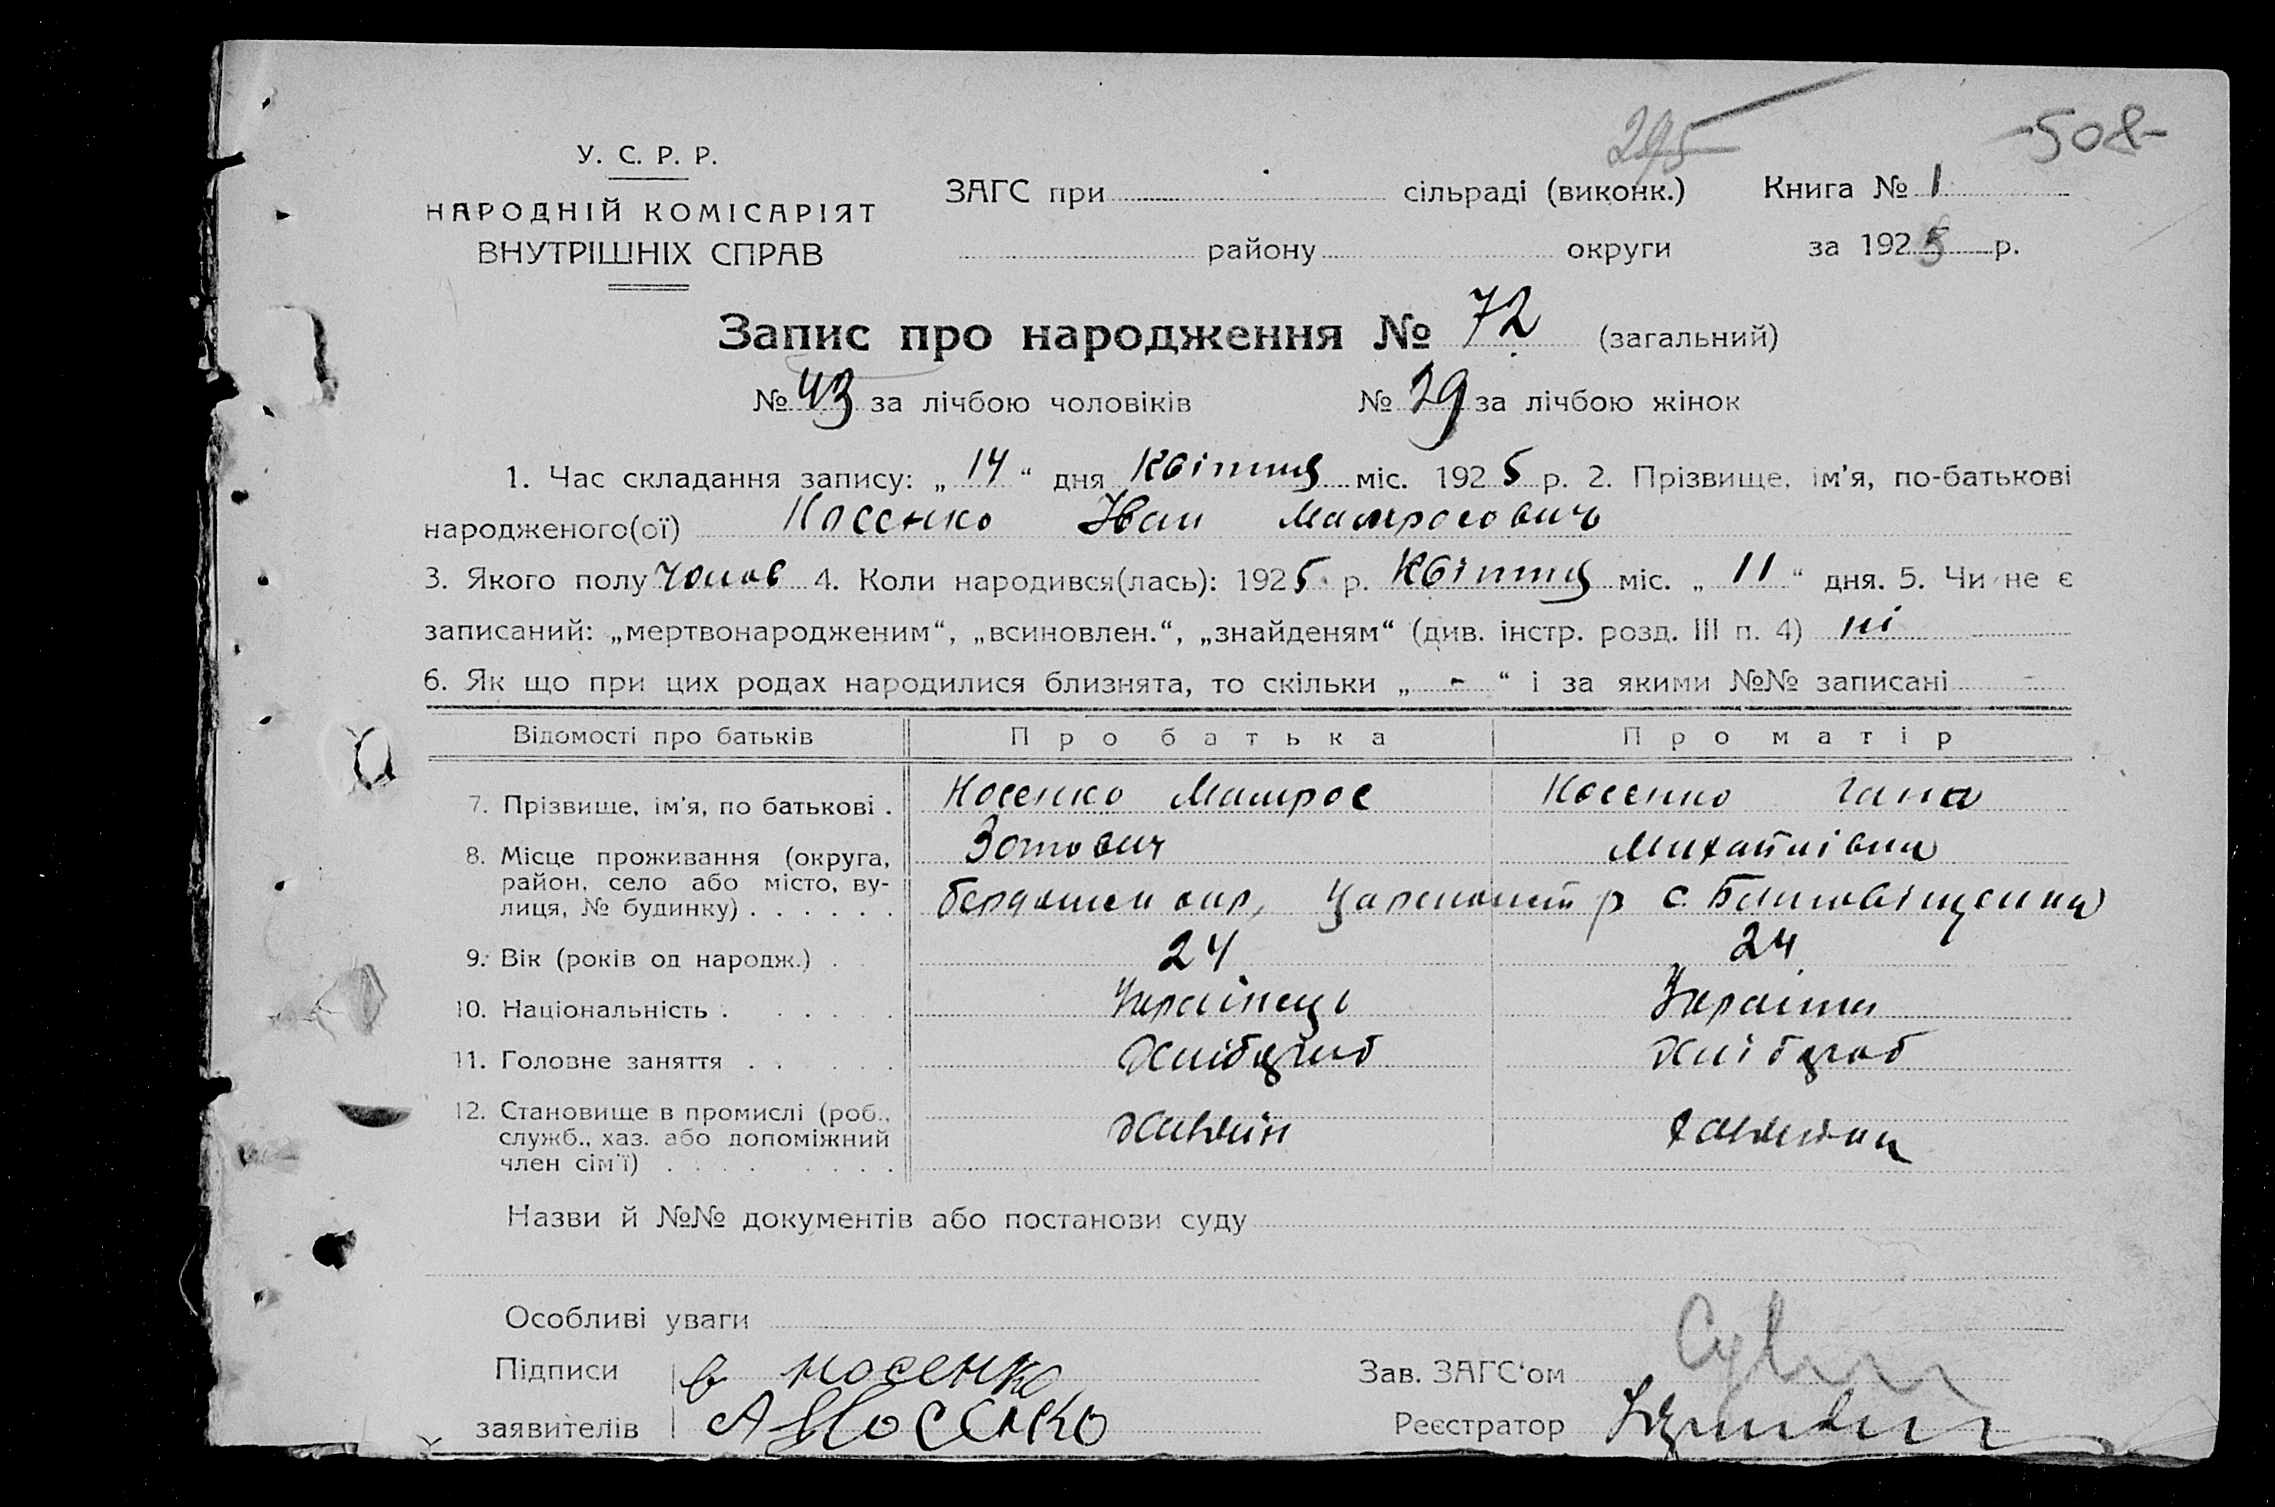 295
-508-
У. С. Р. Р.
НАРОДНІЙ КОМІСАРІЯТ
ВНУТРІШНІХ СПРАВ
ЗАГС при сільраді (виконк.) Книга № 1
району округи за 1925 р.
Запис про народження № 72 (загальний)
№ 43 за лічбою чоловіків № 29 за лічбою жінок
1. Час складання запису: „14“ дня Квітня міс. 1925 р. 2. Прізвище, ім'я, по-батькові
народженого(ої) Носенко Іван Матросович
3. Якого полу чолов 4. Коли народився(лась): 1925 р. Квітня міс. „11“ дня. 5. Чи не є
записаний: „мертвонародженим“, „всиновлен.“, „знайденям“ (див. інстр. розд. III п. 4) ні
6. Як що при цих родах народилися близнята, то скільки „ - “ і за якими №№ записані -
Відомості про батьків Про батька Про матір
7. Прізвище, ім'я, по батькові . Носенко Матрос Носенко Гана
Зотович Михайлівна
8. Місце проживання (округа,
район, село або місто, ву-
лиця, № будинку) . . . . . . окр, р с. Благовіщенка
9. Вік (років од народж.) . 24 24
10. Національність . . . . . . Українець Українка
11. Головне заняття . . . . . Хлібороб Хлібороб
12. Становище в промислі (роб.,
служб., хаз. або допоміжний
член сім'ї) . . . . . . . .
Назви й №№ документів або постанови суду
Особливі уваги
Підписи носенко Зав. ЗАГС'ом
заявителів А Носенко Реєстратор